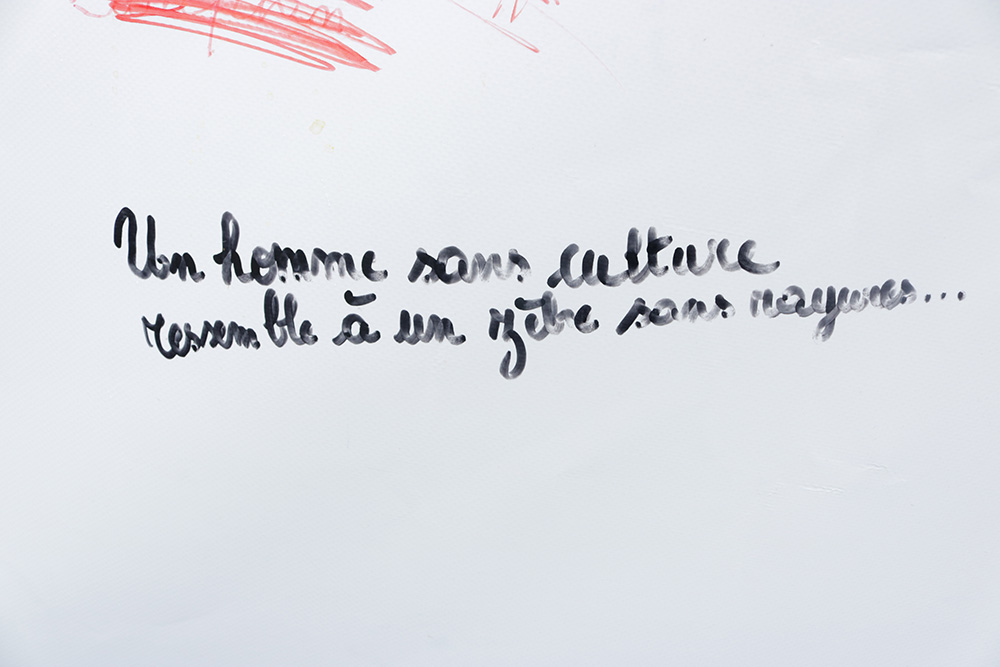 Un homme sans culture
ressemble à un zèbre sans rayures...